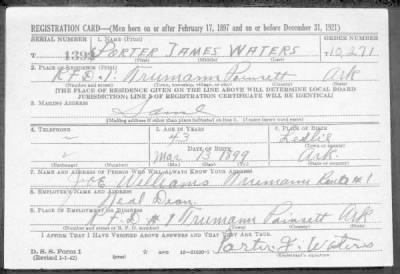 REGISTRATION CARD—(Men born on or after February 17, 1897 and on or before December 31, 1921)
SERIAL NUMBER 1. NAME (Print) ORDER NUMBER
1393 PORTER JAMES WATERS 10,271
(First) (Middle) (Last)
2. PLACE OF RESIDENCE (Print)
R.F.D. 1. Trumann Poinsett Ark
(Number and street) (Town, township, village, or city) (County) (State)
[THE PLACE OF RESIDENCE GIVEN ON THE LINE ABOVE WILL DETERMINE LOCAL BOARD
JURISDICTION; LINE 2 OF REGISTRATION CERTIFICATE WILL BE IDENTICAL]
3. MAILING ADDRESS
Same
[Mailing address if other than place indicated on line 2. If same insert word same]
4. TELEPHONE 5. AGE IN YEARS 6. PLACE OF BIRTH
43 Leslie
DATE OF BIRTH
Mar 13 1899 Ark.
(Mo.) (Day) (Yr.)
7. NAME AND ADDRESS OF PERSON WHO WILL ALWAYS KNOW YOUR ADDRESS
Joe Williams Trumann Route #1
8. EMPLOYER'S NAME AND ADDRESS
Neal Dean.
9. PLACE OF EMPLOYMENT OR BUSINESS
R F D #1 Trumann Poinsett Ark
(Number and street or R. F. D. number) (Town) (County) (State)
I AFFIRM THAT I HAVE VERIFIED ABOVE ANSWERS AND THAT THEY ARE TRUE.
D. S. S. Form 1
(Revised 1-1-42) (over)
Porter J. Waters